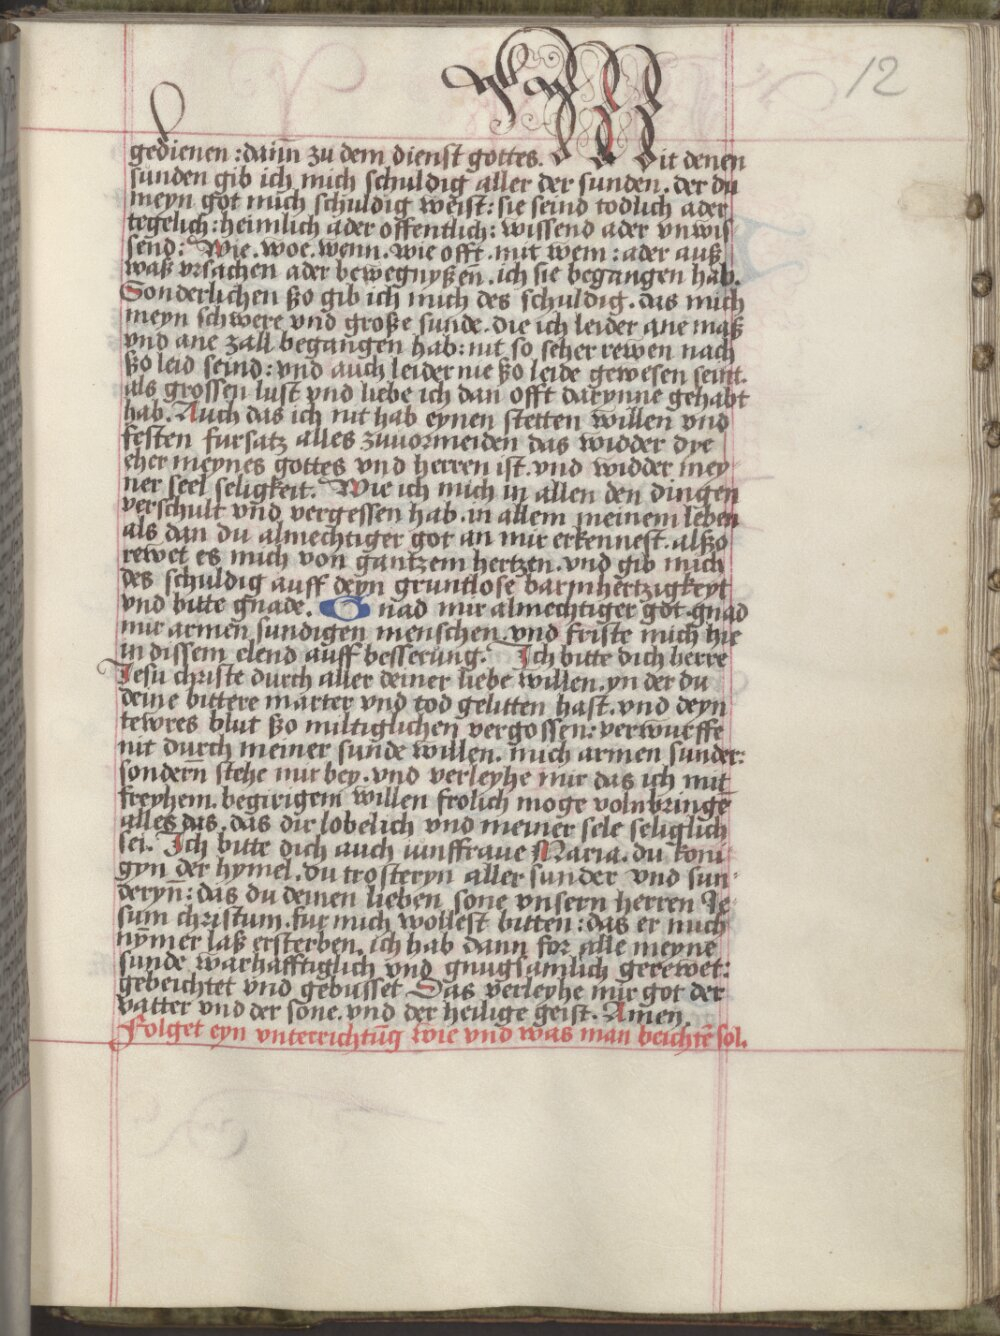 12
gedienen : dann zu dem dienst gottes. Mit denen
sunden gib ich mich schuldig aller der sunden. der du
meyn got mich schuldig weist : sie seind todlich ader
tegelich : heimlich ader offentlich : wissend ader vnwis
send : Wie. woe. wenn. wie offt. mit wem : ader auß
waß vrsachen ader bewegnyßen. ich sie begangen hab.
Sonderlichen ßo gib ich mich des schuldig. das mich
meyn schwere vnd große sunde. die ich leider ane maß
vnd ane zall begangen hab : nit so seher rewen nach
ßo leid seind : vnd auch leider nie ßo leide gewesen seint.
als grossen lust vnd liebe ich dan offt darynne gehabt
hab. Auch das ich nit hab eynen stetten willen vnd
festen fursatz alles zuuormeiden das widder dye
eher meynes gottes vnd herren ist. vnd widder mey
ner seel seligkeit. Wie ich mich in allen den dingen
verschult vnd vergessen hab. in allem meinem leben
als dan du almechtiger got an mir erkennest. alßo
rewet es mich von gantzem hertzen. vnd gib mich
des schuldig auff deyn gruntlose barmhertzigkeyt
vnd bitte gnade. Gnad mir almechtiger got. gnad
mir armen sundigen menschen. vnd friste mich hie
in dissem elend auff besserung. Ich bitte dich herre
Jesu christe durch aller deiner liebe willen. yn der du
deine bittere marter vnd tod gelitten hast. vnd deyn
tewres blut ßo miltiglichen vergossen : verwurffe
nit durch meiner sunde willen. mich armen sunder :
sondern̄ stehe mir bey. vnd verleyhe mir das ich mit
freyhem. begirigem willen frolich moge volnbringē
alles das. das dir lobelich vnd meiner sele seliglich
sei. Ich bitte dich auch iunffraue Maria. du koni
gyn der hymel. du trosteryn aller sunder vnd sun-
deryn̄ : das du deinen lieben sone vnsern herren Je
sum christum. fur mich wollest bitten : das er mich
nȳmer laß ersterben. ich hab dann for alle meyne
sunde warhafftiglich vnd gnugsamlich gerewet :
gebeichtet vnd gebusset. Das verleyhe mir got der
vatter vnd der sone. vnd der heilige geist. Amen.
Folget eyn vnterrichtūg wie vnd was man beichtē sol.